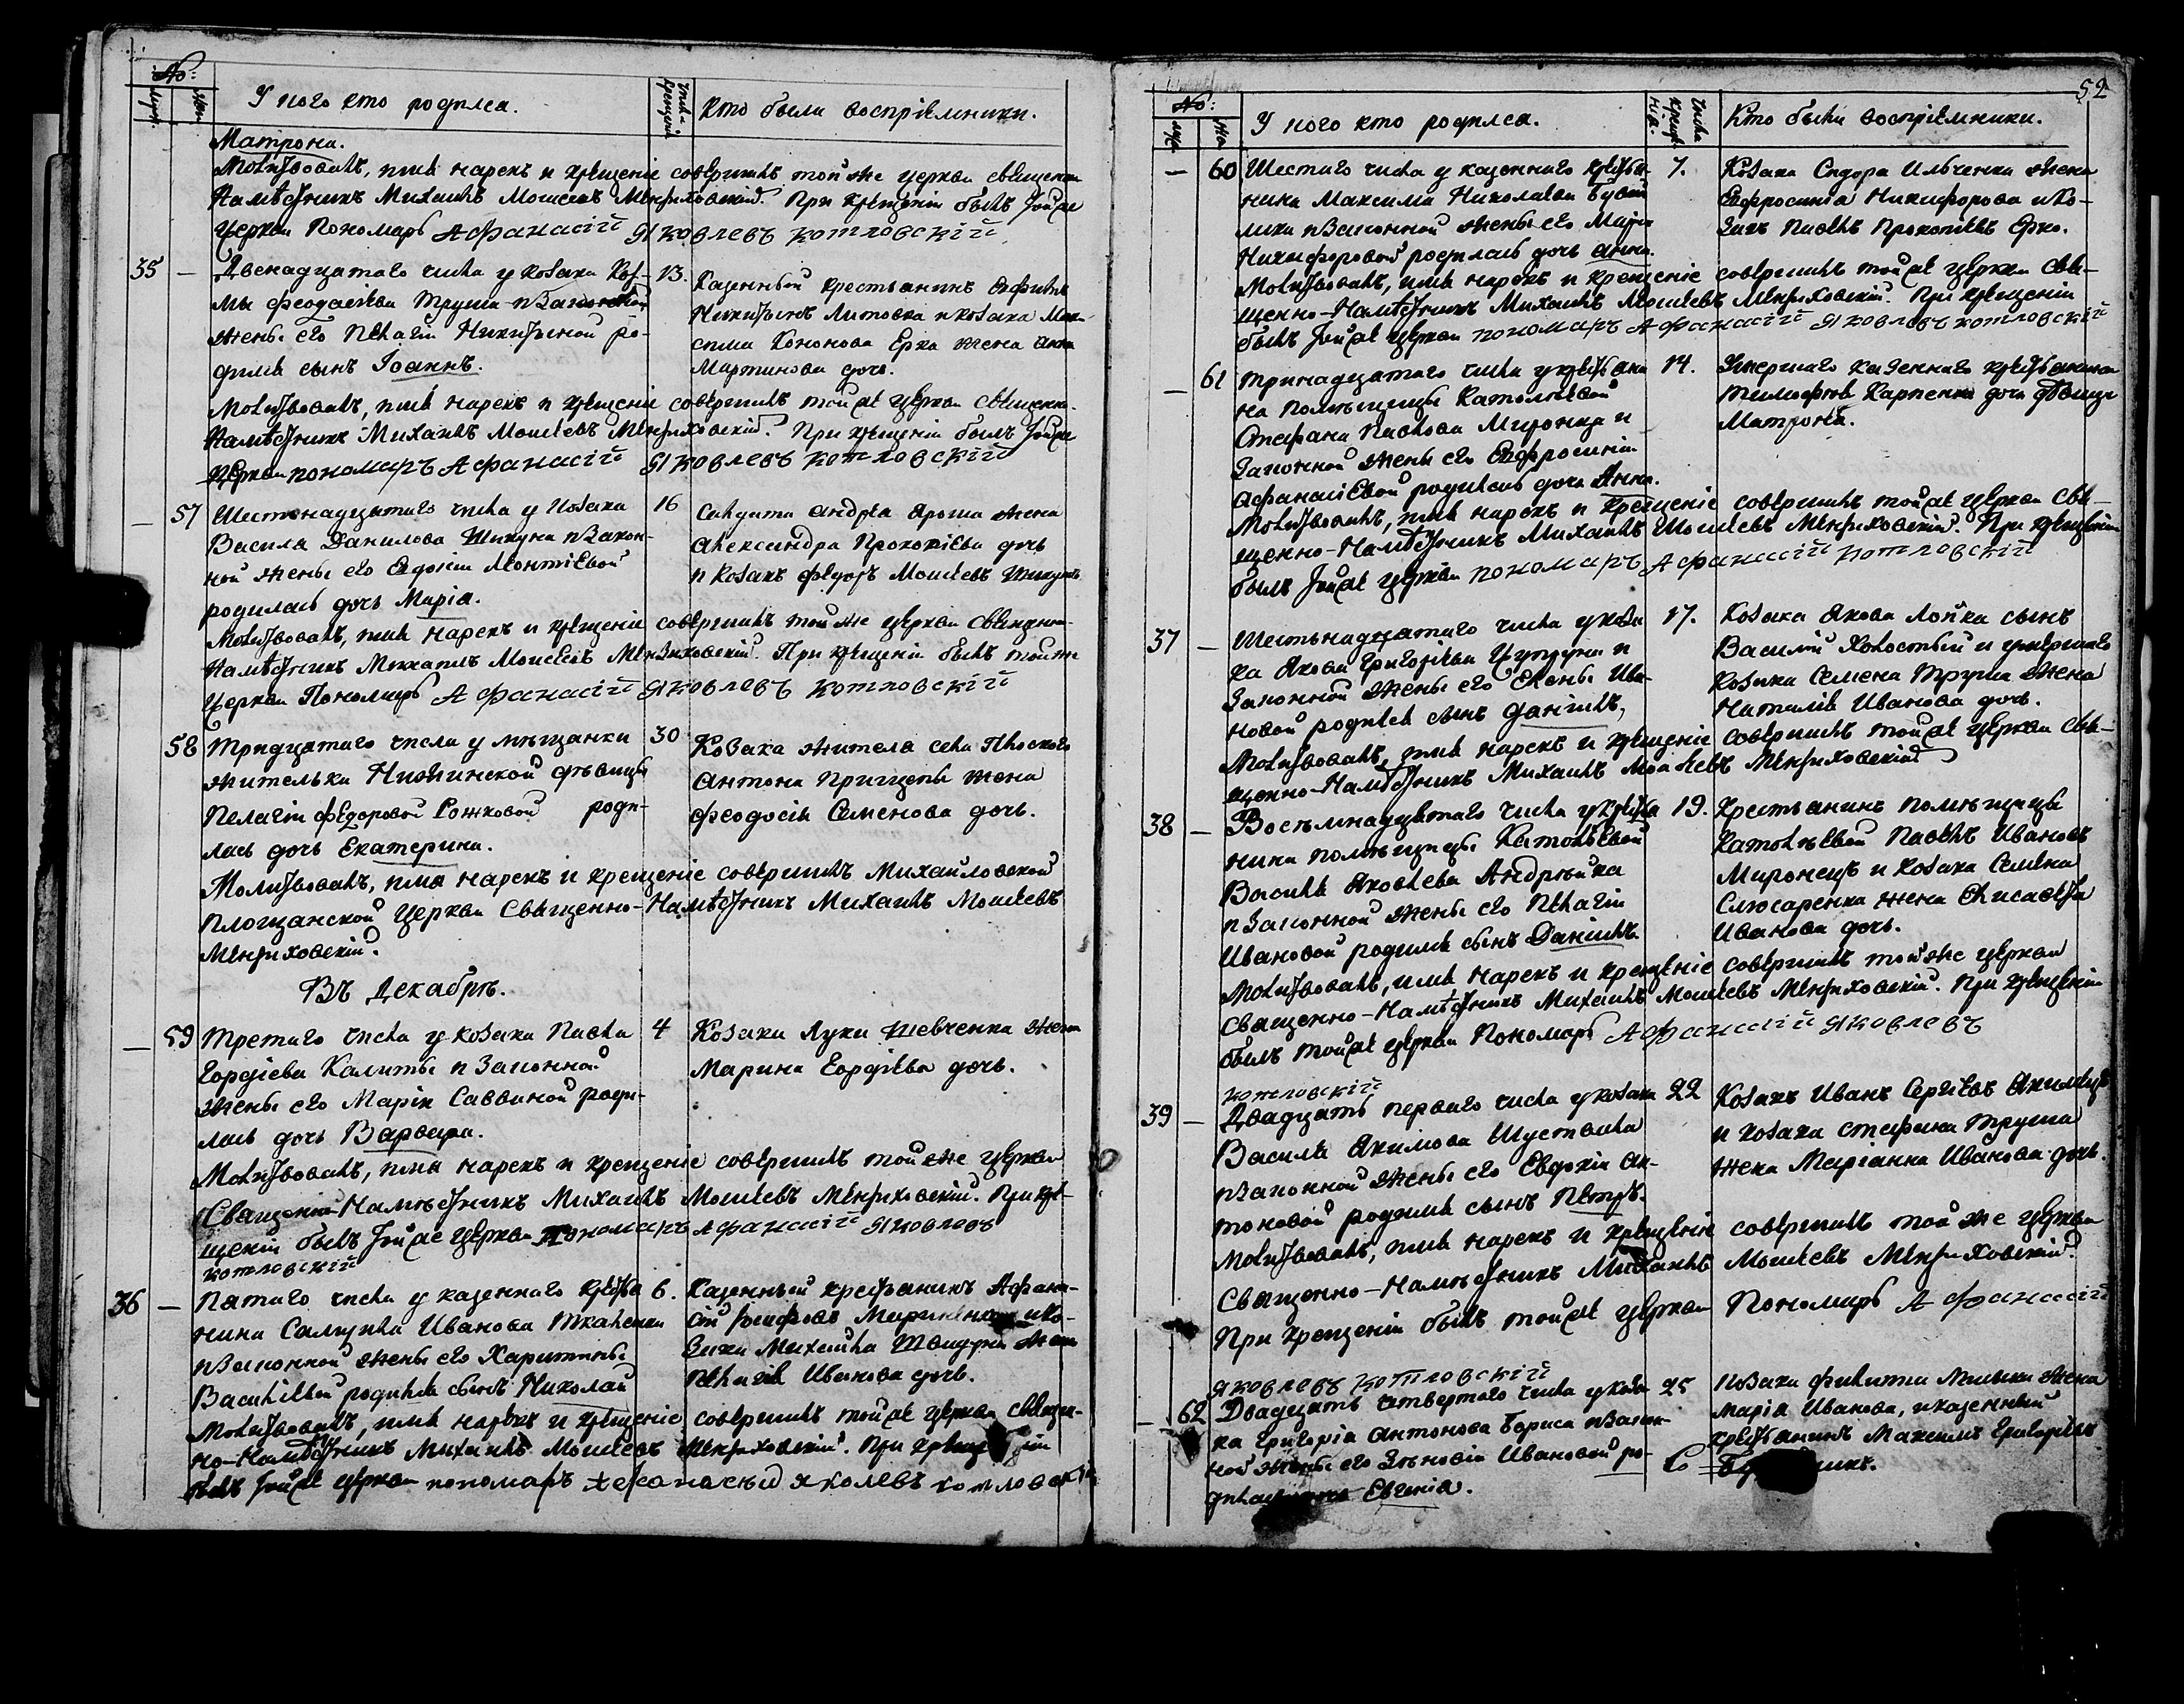 №:
муж.
жен.
У кого кто родился.
числа крещенія
Кто были воспріемники.
Матрона.
Молитвовалъ, имя нарекъ и крещеніе совершилъ той же церкви священно
Намѣстникъ Михаилъ Моисеевъ Мензиховскій. При крещеніи былъ той же
церкви Пономарь Афанасій Яковлевъ котловскій
35 — Двенадцатаго числа у козака Коз-
мы Феодосіева Труша и законной
жены его Пелагіи Никитиной ро-
дился сынъ Іоаннъ.
13.
Казенный крестьянинъ
Никитинъ Литовка и козака Мак-
сима Кононова Ерка жена Анна
Мартинова дочь.
Молитвовалъ, имя нарекъ и крещеніе совершилъ той же церкви священно-
Намѣстникъ Михаилъ Моисеевъ Мензиховскій. При крещеніи былъ той же
церкви пономаръ Афанасій Яковлевъ котловскій
— 57 Шестнадцатаго числа у козака
Василя Данилова Шикуна и закон-
ной жены его Евдокіи Леонтіевой
родилась дочь Марія.
16
Солдата Андрѣя Яроша жена
Александра Прокопіева дочь
и козакъ Федоръ Моисеевъ Шикунъ
Молитвовалъ, имя нарекъ и крещеніе совершилъ той же церкви священно-
Намѣстникъ Михаилъ Моисеевъ Мензиховскій. При крещеніи былъ той же
церкви Пономарь Афанасій Яковлевъ котловскій
58 Тридцатаго числа у мѣщанки
жительки Нѣжинской дѣвицы
Пелагіи Федоровой Рожковой роди-
лась дочь Екатерина.
30
Козака жителя села Плоского
Антона Прищепы жена
Феодосія Семенова дочь.
Молитвовалъ, имя нарекъ и крещеніе совершилъ Михайловской
Площанской церкви Священно-Намѣстникъ Михаилъ Моисеевъ
Мензиховскій.
Въ Декабрѣ.
— 59 Третаго числа у козака Павла
Гордіева Калиты и законной
жены его Маріи Саввиной роди-
лась дочь Варвара.
4
Козака Луки Шевченка жена
Марина Гордіева дочь.
Молитвовалъ, имя нарекъ и крещеніе совершилъ той же церкви
Священно-Намѣстникъ Михаилъ Моисеевъ Мензиховскій. При кре-
щеніи былъ той же церкви пономаръ Афанасій Яковлевъ
котловскій
36 — Пятаго числа у казеннаго крестья
нина Самуила Иванова Ткаченка
и законной жены его Харитины
Василіевой родился сынъ Николай
6.
Казенный крестьянинъ Афана-
сій и ко-
зака Михаила жена
Пелагія Иванова дочь.
Молитвовалъ, имя нарекъ и крещеніе совершилъ той же церкви священ-
но-Намѣстникъ Михаилъ Моисеевъ Мензиховскій. При крещеніи
былъ той же церкви пономаръ Афанасий яколевъ котловский
52
№:
муж.
жен.
У кого кто родился.
числа крещенія
Кто были воспріемники.
— 60 Шестаго числа у казеннаго крестья-
нина Максима Николаева
и законной жены его Маріи
Никифоровой родилась дочь Анна.
7.
Козака Сидора Ильченка жена
Евфросинія Никифорова и ко-
закъ Павелъ Прокопіевъ Ерко.
Молитвовалъ, имя нарекъ и крещеніе совершилъ той же церкви свя-
щенно-Намѣстникъ Михаилъ Моисеевъ Мензиховскій. При крещеніи
былъ той же церкви пономаръ Афанасій Яковлевъ котловскій
— 61 Тринадцатаго числа у крестьяни
на помѣщицы Католѣевой
Стефана Павлова Миронца и
законной жены его Евфросиніи
Афанасіевой родилась дочь Анна.
14.
Умершаго казеннаго крестьянина
Тимофея Карпенка дочь дѣвица
Матрона.
Молитвовалъ, имя нарекъ и крещеніе совершилъ той же церкви свя-
щенно-Намѣстникъ Михаилъ Моисеевъ Мензиховскій. При крещеніи
былъ той же церкви пономаръ Афанасій котловскій
37 — Шестьнадцатаго числа у коза
ка Якова Григоріева и
законной жены его Елены Ива-
новой родился сынъ Даніилъ,
17.
Козака Якова Лойка сынъ
Василій Холостый и умершаго
козака Семена Труша жена
Наталія Иванова дочь.
Молитвовалъ, имя нарекъ и крещеніе совершилъ той же церкви свя-
щенно-Намѣстникъ Михаилъ Моисеевъ Мензиховскій
38 — Восемнадцатаго числа у крестья
нина помѣщицы Католѣевой
Василя Яковлева Андрѣйка
и законной жены его Пелагіи
Ивановой родился сынъ Даніилъ.
19.
Крестьянинъ помѣщицы
Католѣевой Павелъ Ивановъ
Миронецъ и козака Семена
Слюсаренка жена Елисавета
Иванова дочь.
Молитвовалъ, имя нарекъ и крещеніе совершилъ той же церкви
Священно-Намѣстникъ Михаилъ Моисеевъ Мензиховскій. При крещеніи
былъ той же церкви Пономарь Афанасій Яковлевъ
котловскій
39 — Двадцать перваго числа у козака
Василя Акимова Шуставала
и законной жены его Евдокіи Ан-
тоновой родился сынъ Петръ.
22
Козакъ Иванъ Сергѣевъ
и козака Стефана Труша
жена Маріанна Иванова дочь.
Молитвовалъ, имя нарекъ и крещеніе совершилъ той же церкви
Священно-Намѣстникъ Михаилъ Моисеевъ Мензиховскій.
При крещеніи былъ той же церкви Пономарь Афанасій
Яковлевъ котловскій
— 62 Двадцать четвертаго числа у коза
ка Григорія Антонова Бориса и закон-
ной жены его Зѣновіи Ивановой ро-
дилась Евгенія.
25
козака Филиппа жена
Марія Иванова, и казенный
крестьянинъ Максимъ Григоріевъ